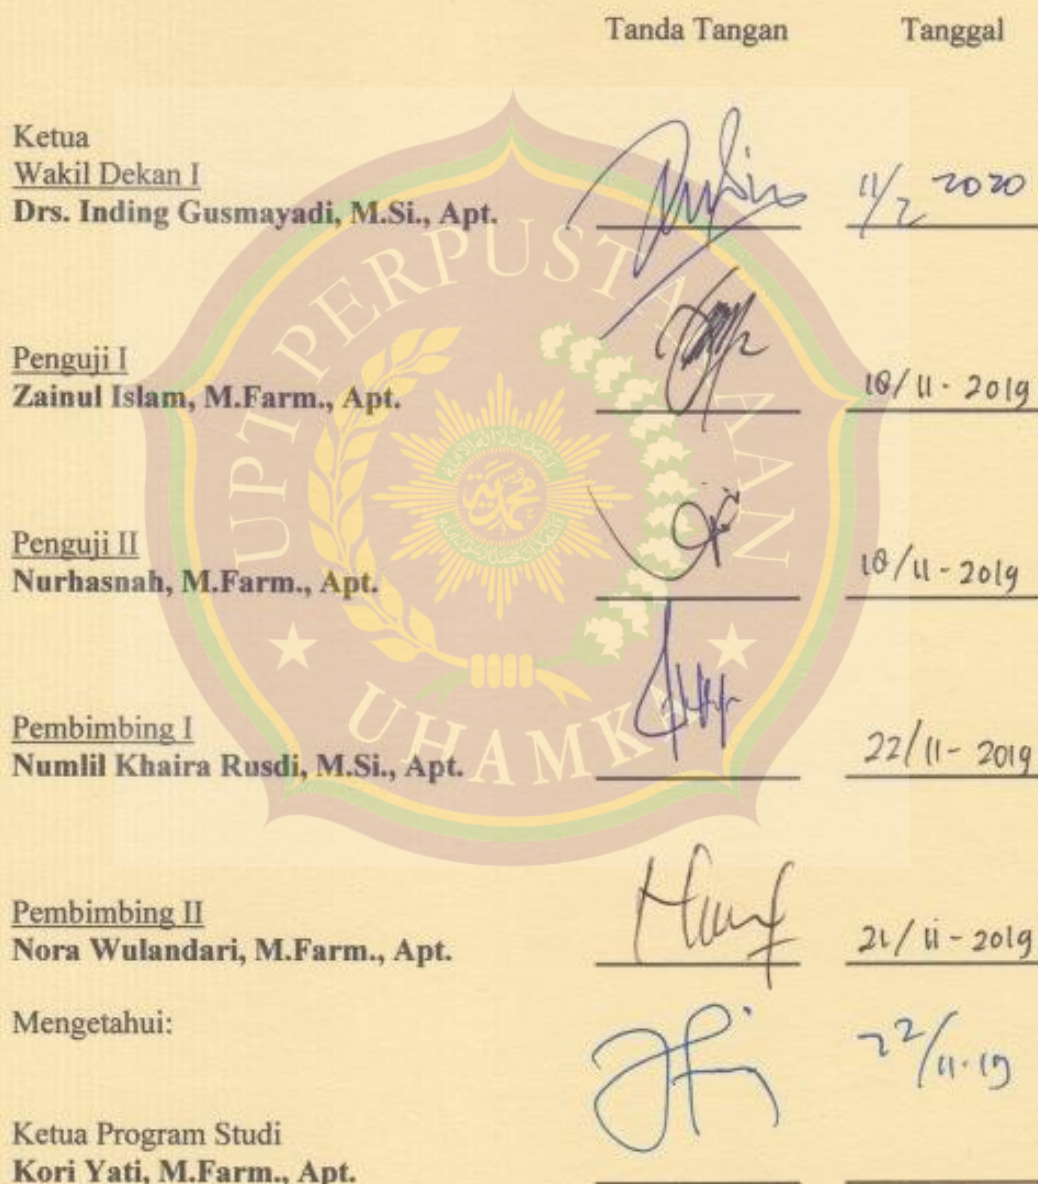 Tanda Tangan Tanggal
Ketua
Wakil Dekan I
Drs. Inding Gusmayadi, M.Si., Apt. 11/2 2020
Penguji I
Zainul Islam, M.Farm., Apt. 18/11 - 2019
Penguji II
Nurhasnah, M.Farm., Apt. 18/11 - 2019
Pembimbing I
Numlil Khaira Rusdi, M.Si., Apt. 22/11 - 2019
Pembimbing II
Nora Wulandari, M.Farm., Apt. 21/11 - 2019
Mengetahui:
22/11-19
Ketua Program Studi
Kori Yati, M.Farm., Apt.
UPT PERPUSTAKAAN
UHAMKA